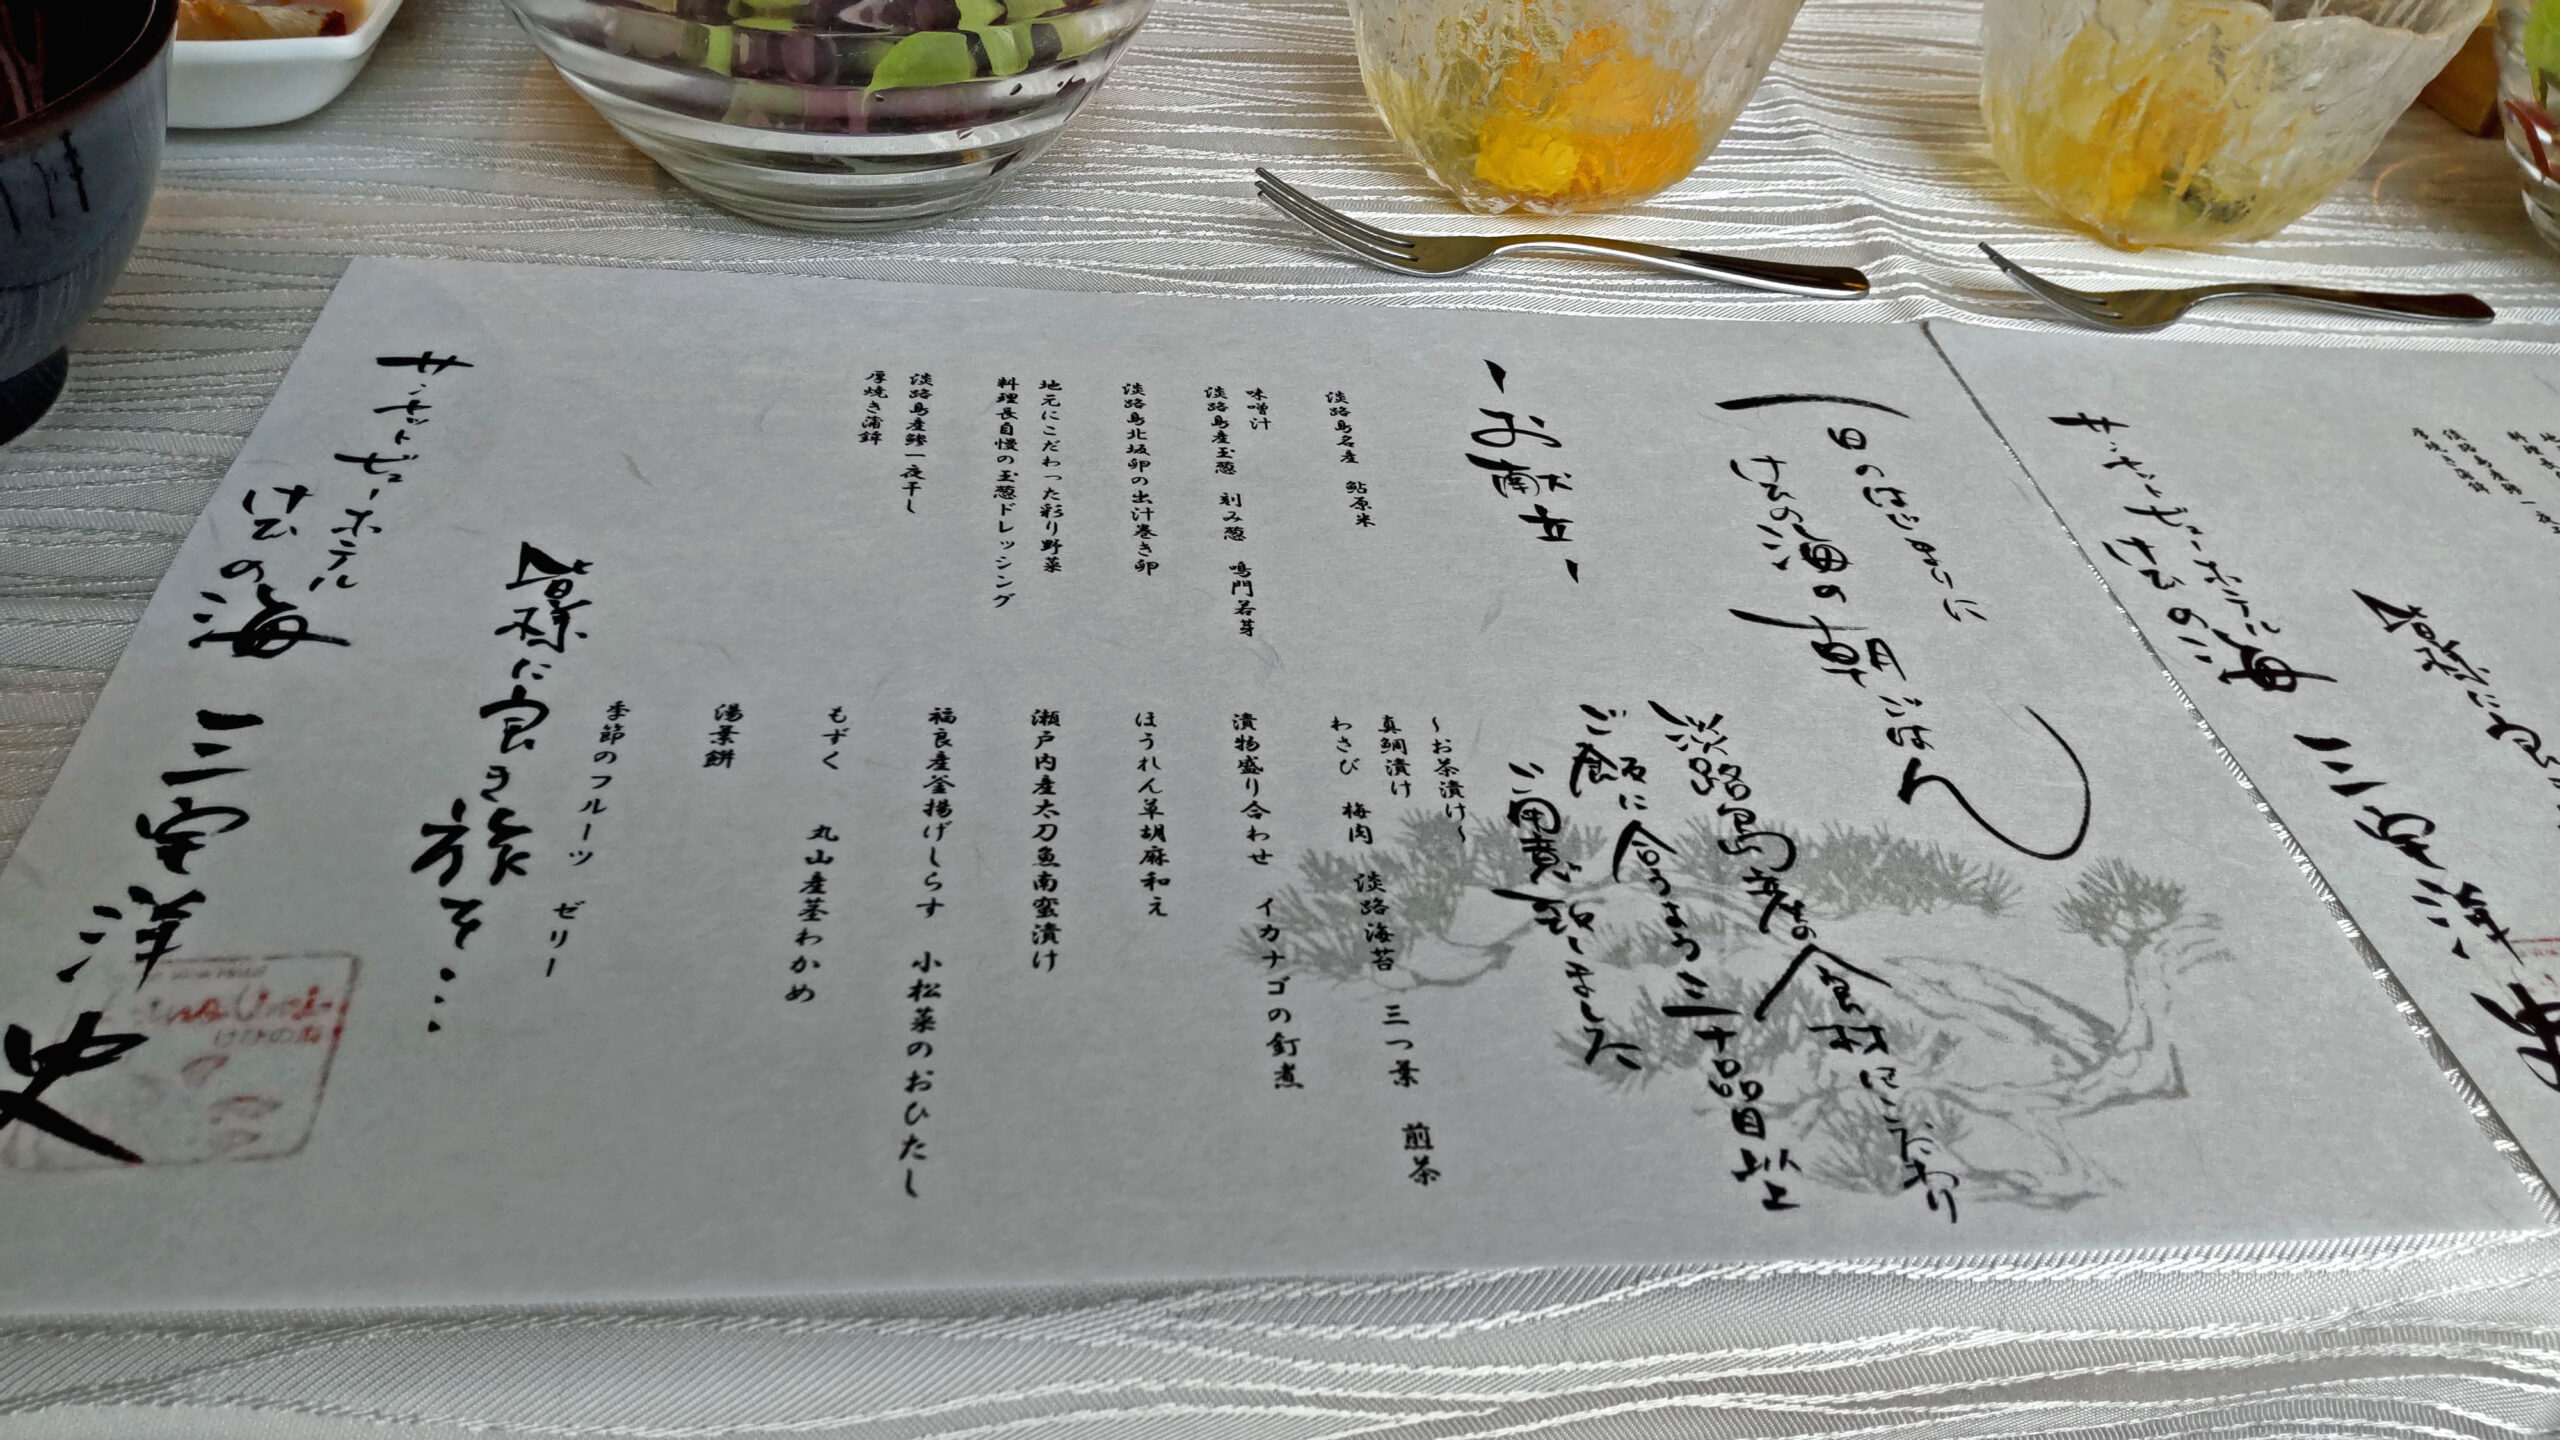 一日のはじまりに
けひの海の朝ごはん
淡路島産の食材にこだわり
ご飯に合うよう三十品目以上
ご用意致しました
-お献立-
淡路島名産 鮎原米
味噌汁
淡路島産玉葱 刻み葱 鳴門若芽
淡路島北坂卵の出汁巻き卵
地元にこだわった彩り野菜
料理長自慢の玉葱ドレッシング
淡路島産鯵一夜干し
厚焼き蒲鉾
~お茶漬け~
真鯛漬け
わさび 梅肉 淡路海苔 三つ葉 煎茶
漬物盛り合わせ イカナゴの釘煮
ほうれん草胡麻和え
瀬戸内産太刀魚南蛮漬け
福良産釜揚げしらす 小松菜のおひたし
もずく 丸山産茎わかめ
湯葉餅
季節のフルーツ ゼリー
皆様に良き旅を…
サンセットビューホテル
けひの海 三宅洋
サンセットビューホテル
けひの海 三宅洋